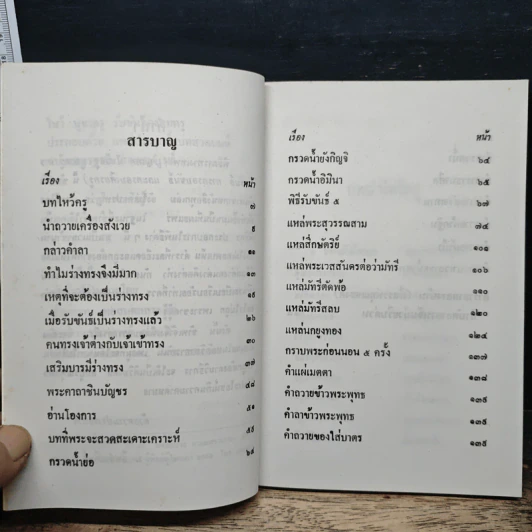 สารบาญ
เรื่อง หน้า
บทไหว้ครู ๗
นำถวายเครื่องสังเวย ๙
กล่าวคำลา ๑๑
ทำไมร่างทรงจึงมีมาก ๑๓
เหตุที่จะต้องเป็นร่างทรง ๑๙
เมื่อรับขันธ์เป็นร่างทรงแล้ว ๒๖
คนทรงเจ้าต่างกับเจ้าเข้าทรง ๓๐
เสริมบารมีร่างทรง ๓๗
พระคาถาชินบัญชร ๔๘
อ่านโองการ ๕๑
บทที่พระจะสวดสะเดาะเคราะห์ ๕๕
กรวดน้ำย่อ ๖๔
เรื่อง หน้า
กรวดน้ำยังกิญจิ ๖๔
กรวดน้ำอิมินา ๖๕
พิธีรับขันธ์ ๕ ๖๗
แหล่พระสุวรรณสาม ๗๔
แหล่สี่กษัตริย์ ๑๐๑
แหล่พระเวสสันดรต่อว่ามัทรี ๑๐๖
แหล่มัทรีตัดพ้อ ๑๑๐
แหล่มัทรีสลบ ๑๒๐
แหล่นกยูงทอง ๑๒๔
กราบพระก่อนนอน ๕ ครั้ง ๑๓๗
คำแผ่เมตตา ๑๓๘
คำถวายข้าวพระพุทธ ๑๓๙
คำลาข้าวพระพุทธ ๑๓๙
คำถวายของใส่บาตร ๑๓๙